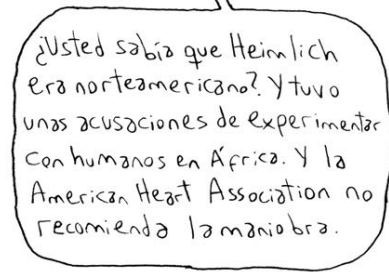 ¿Usted sabía que Heimlich
era norteamericano? Y tuvo
unas acusaciones de experimentar
con humanos en África. Y la
American Heart Association no
recomienda la maniobra.